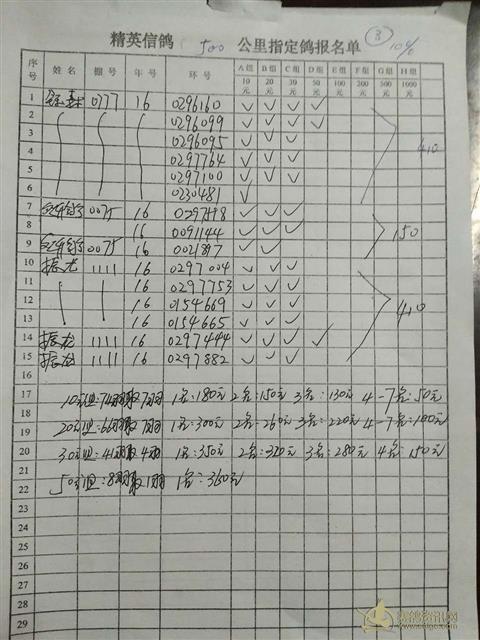 精英信鸽 500 公里指定鸽报名单 ③ 10%
序号 姓名 棚号 年号 环号 A组 B组 C组 D组 E组 F组 G组 H组
10元 20元 30元 50元 100元 200元 500元 1000元
1 0777 16 0296160 ✓ ✓ ✓ ✓
2 0296099 ✓ ✓ ✓ ✓
3 0296095 ✓ ✓ ✓
4 0297764 ✓ ✓ ✓ 410
5 0297100 ✓ ✓ ✓
6 0230481 ✓
7 0075 16 ✓ ✓ ✓
8 16 0091144 ✓ ✓ ✓ 150
9 0075 16 ✓ ✓
10 振龙 1111 16 0297004 ✓ ✓ ✓
11 16 0297753 ✓ ✓ ✓
12 16 0154669 ✓ ✓ ✓ 410
13 16 0154665 ✓ ✓ ✓
14 振龙 1111 16 0297444 ✓ ✓ ✓ ✓
15 振龙 1111 16 0297882 ✓ ✓ ✓
16
17 10元组:74羽取7羽 1名:180元 2名:150元 3名:130元 4-7名:50元
18
19 20元组:66羽取7羽 1名:300元 2名:260元 3名:220元 4-7名:100元
20 30元组:41羽取4羽 1名:350元 2名:320元 3名:280元 4名:150元
21
22 50元组:8羽取1羽 1名:360元
23
24
25
26
27
28
29